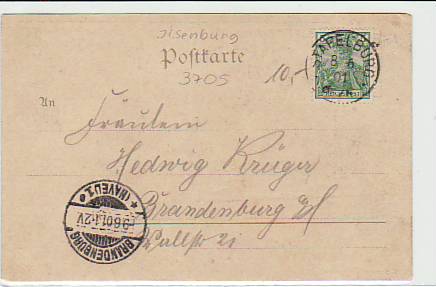 Ilsenburg
Postkarte
3705
10,-
STAPELBURG
8 6
01
An
Fräulein
Hedwig Krüger
Brandenburg a/H
Wallstr 21
BRANDENBURG
*(HAVEL)1*
9.6.01.1-2V